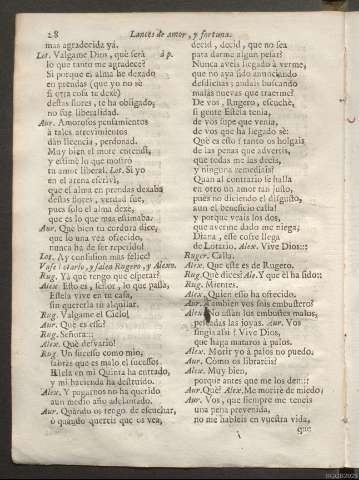 28 Lances de amor, y fortuna.
mas agradecida yá.
Lot. Valgame Dios, què serà à p.
lo que tanto me agradece?
Si porque el alma he dexado
en prendas (que yo no sè
si otra cosa te dexè)
destas flores, te ha obligado,
no fue liberalidad.
Aur. Amorosos pensamientos
à tales atrevimientos
dàn licencia, perdonad.
Muy bien el mote entendì,
y estimè lo que mostrò
tu amor liberal. Lot. Si yo
en el arena escriví,
que el alma en prendas dexaba
destas flores, verdad fue,
pues solo el alma dexè,
que es lo que mas estimaba.
Aur. Què bien tu cordura dice,
que lo una vez ofrecido,
nunca ha de ser repetido!
Lot. Ay confusion mas felice!
Vase Lotario, y salen Rugero, y Alexo.
Rug. Yà què tengo què esperar?
Alex Esto es, señor, lo que passa,
Estela vive en tu casa,
sin quererla tù alquilar.
Rug. Valgame el Cielo!
Aur. Què es esso?
Rug. Señora:::
Alex. Què desvario!
Rug Un sucesso como mio,
sabràs que es malo el sucesso.
Estela en mi Quinta ha entrado,
y mi hacienda ha destruìdo.
Alex. Y pagarnos no ha querido
aun medio año adelantado.
Aur. Quàndo os tengo de escuchar,
ò quàndo quereis que os vea,
decid, decid, que no sea
para darme algun pesar?
Nunca aveis llegado à verme,
que no aya sido anunciando
desdichas; andais buscando
malas nuevas que traerme?
De vos, Rugero, escuchè,
si gente Estela tenia,
de vos supe que venia,
de vos que ha llegado sè:
Què es esto? tanto os holgais
de las penas que advertis,
que todas me las decis,
y ninguna remediais?
Quan al contrario se halla
en otro un amor tan justo,
pues no diciendo el disgusto,
aun el beneficio calla!
y porque veais los dos,
que averme dado me niega;
Diana, esse cofre llega
de Lotario. Alex. Vive Dios:::
Ruger. Calla.
Alex. Que este es de Rugero.
Rug. Què dices? Ale. Y que èl ha sido::
Rug. Mientes.
Alex. Quien esso ha ofrecido.
Aur. Tambien vos sois embustero?
Alex. No essan los embustes malos,
prestadas las joyas. Aur. Vos
fingis assi? Vive Dios,
que haga mataros à palos.
Alex. Morir yo à palos no puedo.
Aur. Còmo os librareis?
Alex. Muy bien,
porque antes que me los den:::
Aur. Què? Alex. Me morirè de miedo;
Aur. Vos, que siempre me teneis
una pena prevenida,
no me hableis en vuestra vida,
que